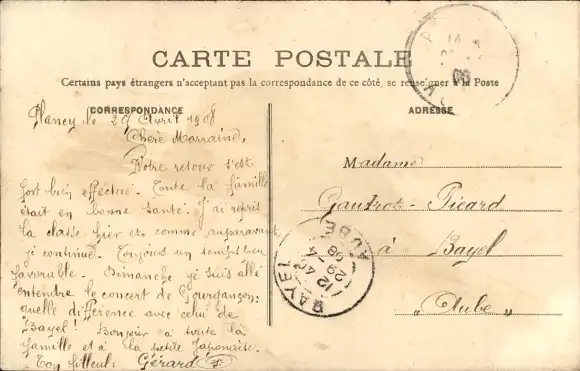 CARTE POSTALE
Certains pays étrangers n'acceptant pas la correspondance de ce côté, se renseigner à la Poste
CORRESPONDANCE
ADRESSE
Plancy, le 27 Avril 1908
Chère Marraine,
Notre retour s'est
fort bien effectué. Toute la famille
était en bonne santé. J'ai repris
la classe hier et comme auparavant
je continue. Toujours un temps peu
favorable. Dimanche je suis allé
entendre le concert de Gourgançon:
quelle différence avec celui de
Bayel! Bonjour à toute la
famille et à la petite Japonaise.
Ton filleul: Gérard
Madame
Gautrot-Picard
à Bayel
"Aube"
BAYEL
AUBE
12 40
29-4
08